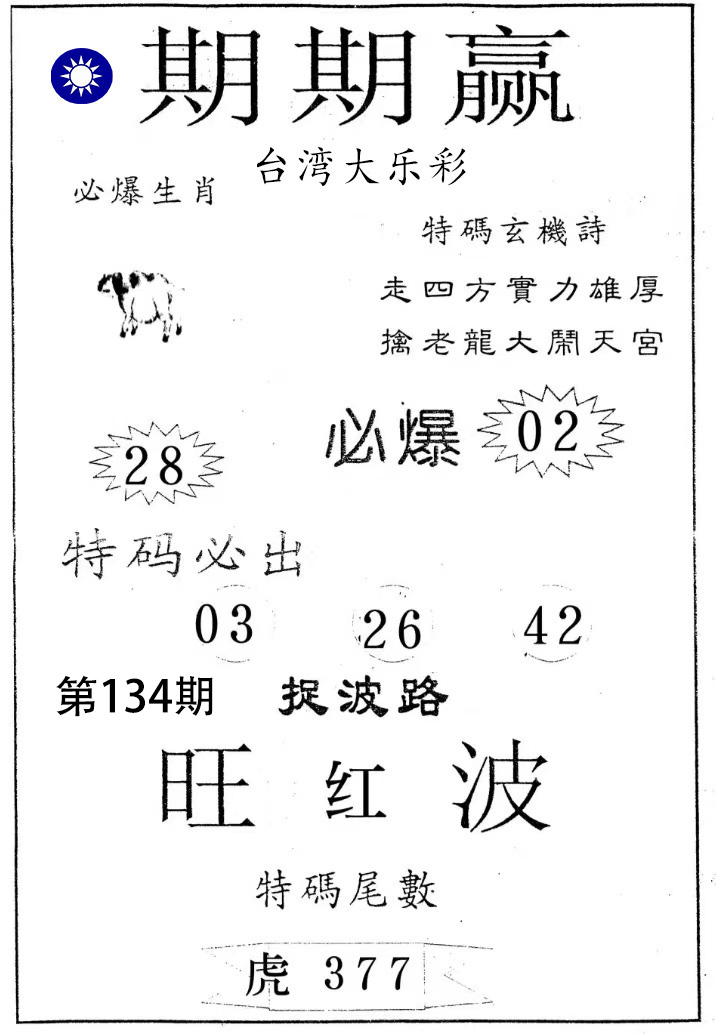 期期赢
台湾大乐彩
必爆生肖
特碼玄機詩
走四方實力雄厚
擒老龍大鬧天宮
必爆 02
28
特码必出
03 26 42
第134期 捉波路
旺红波
特碼尾數
虎 377